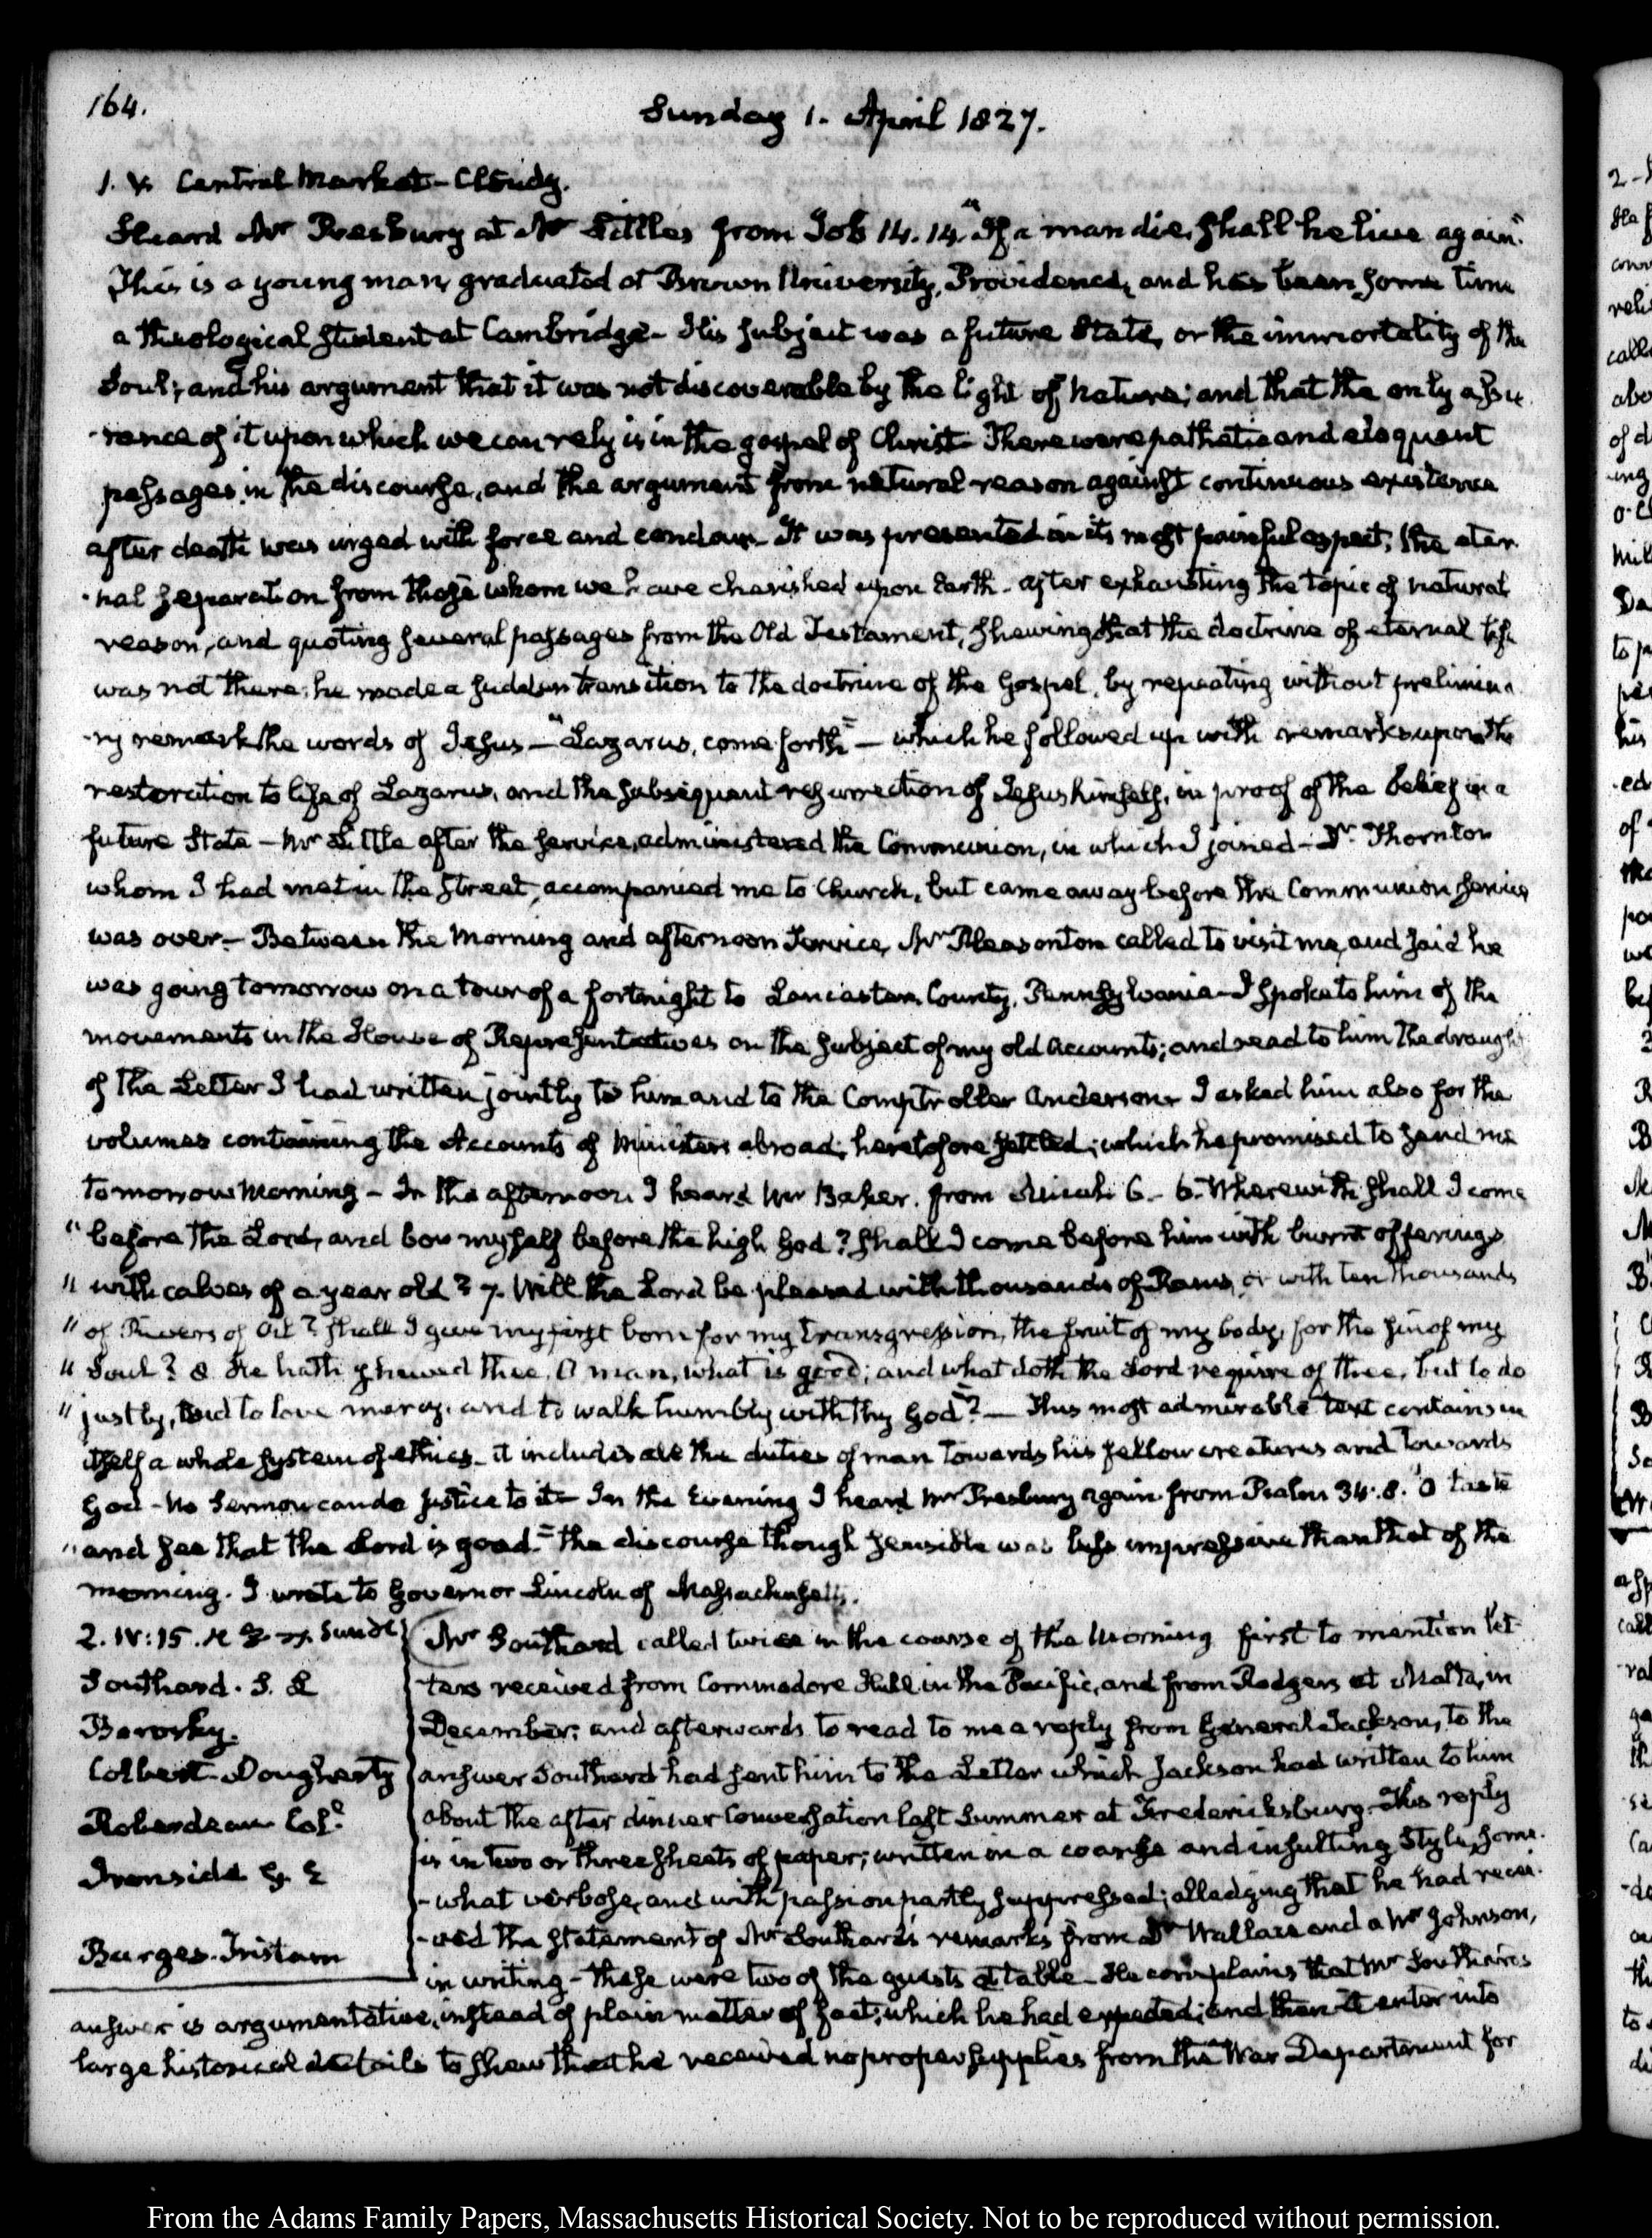 164.
Sunday 1. April 1827.
1. V. Central Market - Cloudy.
Heard Mr Presbury at Mr Little's from Job 14.14. "If a man die, shall he live again."
This is a young man, graduated at Brown University, Providence, and has been some time
a theological student at Cambridge - His subject was a future State, or the immortality of the
Soul; and his argument that it was not discoverable by the light of Nature; and that the only assu
-rance of it upon which we can rely is in the gospel of Christ - There were pathetic and eloquent
passages in the discourse, and the argument from natural reason against continuous existence
after death was urged with force and candour - It was presented in its most painful aspect, the eter
-nal separation from those whom we have cherished upon Earth - after exhausting the topic of natural
reason, and quoting several passages from the Old Testament, shewing that the doctrine of eternal life
was not there; he made a sudden transition to the doctrine of the Gospel, by repeating without prelimina
-ry remark the words of Jesus - "Lazarus, come forth" - which he followed up with remarks upon the
restoration to life of Lazarus, and the subsequent resurrection of Jesus himself, in proof of the belief in a
future State - Mr Little after the service, administered the Communion, in which I joined - Dr. Thornton
whom I had met in the Street, accompanied me to Church, but came away before the Communion service
was over - Between the Morning and afternoon Service, Mr Pleasonton called to visit me, and said he
was going tomorrow on a tour of a fortnight to Lancaster County, Pennsylvania - I spoke to him of the
movements in the House of Representatives on the subject of my old accounts; and read to him the draught
of the Letter I had written jointly to him and to the Comptroller Anderson - I asked him also for the
volumes containing the Accounts of Ministers abroad, heretofore settled; which he promised to send me
tomorrow Morning - In the afternoon I heard Mr Baker. from Micah 6. 6. "Wherewith shall I come
" before the Lord, and bow myself before the high God? shall I come before him with burnt offerings
" with calves of a year old? 7. Will the Lord be pleased with thousands of Rams, or with ten thousands
" of Rivers of Oil? shall I give my first born for my transgression, the fruit of my body, for the sin of my
" Soul? 8. He hath shewed thee, O man, what is good; and what doth the Lord require of thee, but to do
" justly, and to love mercy, and to walk humbly with thy God"? - This most admirable text contains in
itself a whole system of ethics - it includes all the duties of man towards his fellow creatures and towards
God - No Sermon can do justice to it - In the Evening I heard Mr Presbury again from Psalm 34.8. "O taste
" and see that the Lord is good." the discourse though sensible was less impressive than that of the
morning. I wrote to Governor Lincoln of Massachusetts.
2. IV:15.
Southard. S. L
Borosky.
Colbert - Dougherty
Roberdeau Colo.
Ironside G. E
Burges. Tristam
Mr Southard called twice in the course of the Morning first to mention let-
-ters received from Commodore Hull in the Pacific, and from Rodgers at Malta, in
December; and afterwards to read to me a reply from General Jackson, to the
answer Southard had sent him to the Letter which Jackson had written to him
about the after dinner conversation last Summer at Fredericksburg. This reply
is in two or three sheets of paper; written in a coarse and insulting Style, some-
-what verbose, and with passion partly suppressed; alledging that he had recei-
-ved the statement of Mr Southard's remarks from Dr Wallace and a Mr Johnson,
in writing - these were two of the guests at table - He complains that Mr Southard's
answer is argumentative, instead of plain matter of fact; which he had expected; and then enter into
large historical details to shew that he received no proper supplies from the War Department for
From the Adams Family Papers, Massachusetts Historical Society. Not to be reproduced without permission.